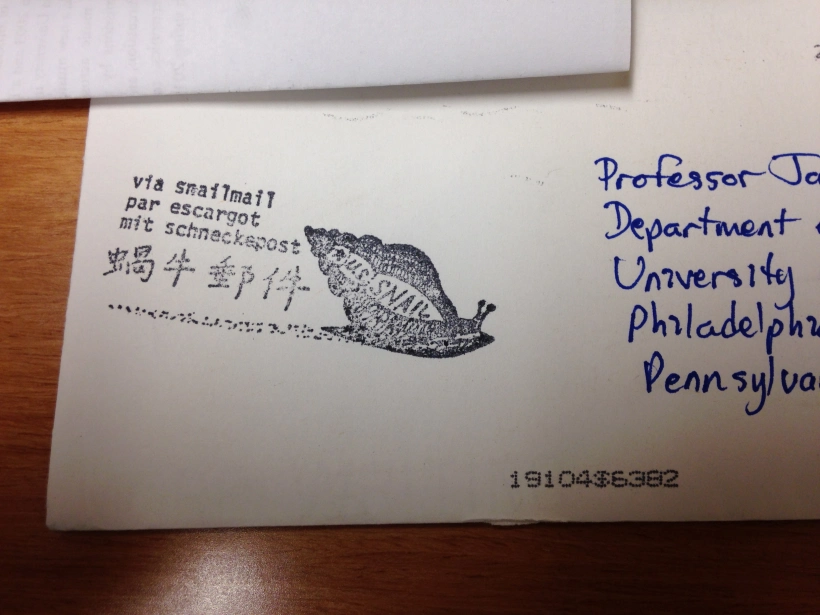 via snailmail
par escargot
mit schneckepost
蝸牛郵件
SNAIL
Professor
Department
University
Philadelphi
Pennsylva
19104$6382